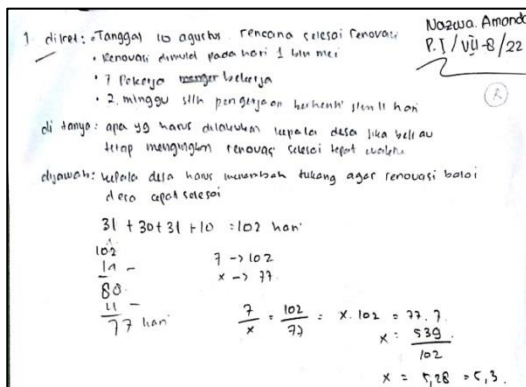 Nazwa. Amanda
P.I / VII-8/22
1 diket: • Tanggal 10 agustus rencana selesai renovasi
• Renovasi dimulai pada hari 1 bln mei
• 7 Pekerja menger bekerja
• 2 minggu stlh pengerjaan berhenti slm 11 hari
di tanya: apa yg harus dilakukan kepala desa jika beliau
tetap mengingkn renovasi selesai tepat waktu
dijawab: kepala desa harus menambah tukang agar renovasi balai
desa cepat selesai
31 + 30 + 31 + 10 = 102 hari
102
14 -
88
11 -
77 hari
7 -> 102
x -> 77
7/x = 102/77 = x . 102 = 77 . 7
x = 539/102
x = 5,28 = 5,3